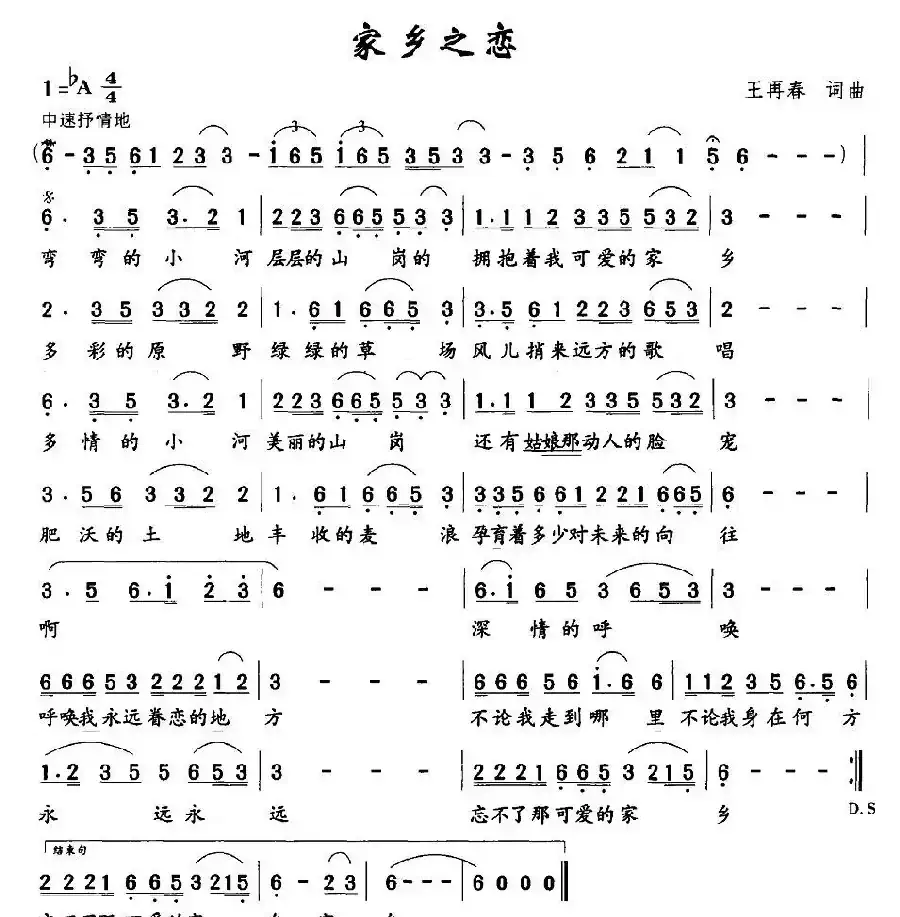 家乡之恋
1=♭A 4/4
王再春 词曲
中速抒情地
(6 - 3 5 6 1 2 3 3 3 - i 6 5 i 6 5 3 5 3 3 - 3 5 6 2 1 1 5 6 - - - )
6 . 3 5 3. 2 1 | 2 2 3 6 6 5 5 3 3 | 1. 1 1 2 3 3 5 5 3 2 | 3 - - - |
弯 弯的小 河 层层的山 岗的 拥抱着我可爱的家 乡
2 . 3 5 3 3 2 2 | 1 . 6 1 6 6 5 3 | 3. 5 6 1 2 2 3 6 5 3 | 2 - - - |
多 彩的原 野 绿 绿的草 场 风儿捎来远方的歌 唱
6 . 3 5 3. 2 1 | 2 2 3 6 6 5 5 3 3 | 1. 1 1 2 3 3 5 5 3 2 | 3 - - - |
多 情的小 河 美丽的山 岗 还有姑娘那动人的脸 宠
3 . 5 6 3 3 2 2 | 1 . 6 1 6 6 5 3 | 3 3 5 6 6 1 2 2 1 6 6 5 | 6 - - - |
肥 沃的土 地 丰 收的麦 浪 孕育着多少对未来的向 往
3 . 5 6. i 2 3 | 6 - - - | 6. i 6 5 3 6 5 3 | 3 - - - |
啊 深 情的呼 唤
6 6 6 5 3 2 2 2 1 2 | 3 - - - | 6 6 6 5 6 i. 6 6 | 1 1 2 3 5 6. 5 6 |
呼唤我永远眷恋的地 方 不论我走到哪 里 不论我身在何 方
1. 2 3 5 5 6 5 3 | 3 - - - | 2 2 2 1 6 6 5 3 2 1 5 | 6 - - - :‖
永 远永 远 忘不了那可爱的家 乡 D.S
结束句
2 2 2 1 6 6 5 3 2 1 5 | 6 - - 2 3 | 6 - - - | 6 0 0 0 ‖